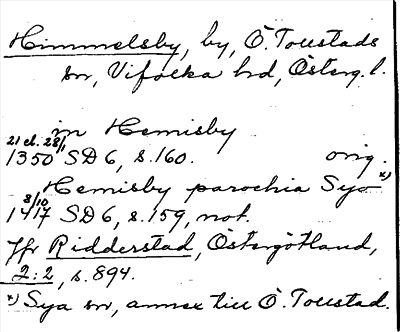 Himmelsby, by, Ö. Tollstads
sn, Vifolka hd, Österg. l.
in Hemisby
21 el. 28/1
1350 SD 6, s. 160. orig.
Hemisby parochia Sya x)
8/10
1417 SD 6, s. 159, not.
Jfr Ridderstad, Östergötland,
2:2, s. 894.
x) Sya sn, annex till Ö. Tollstad.